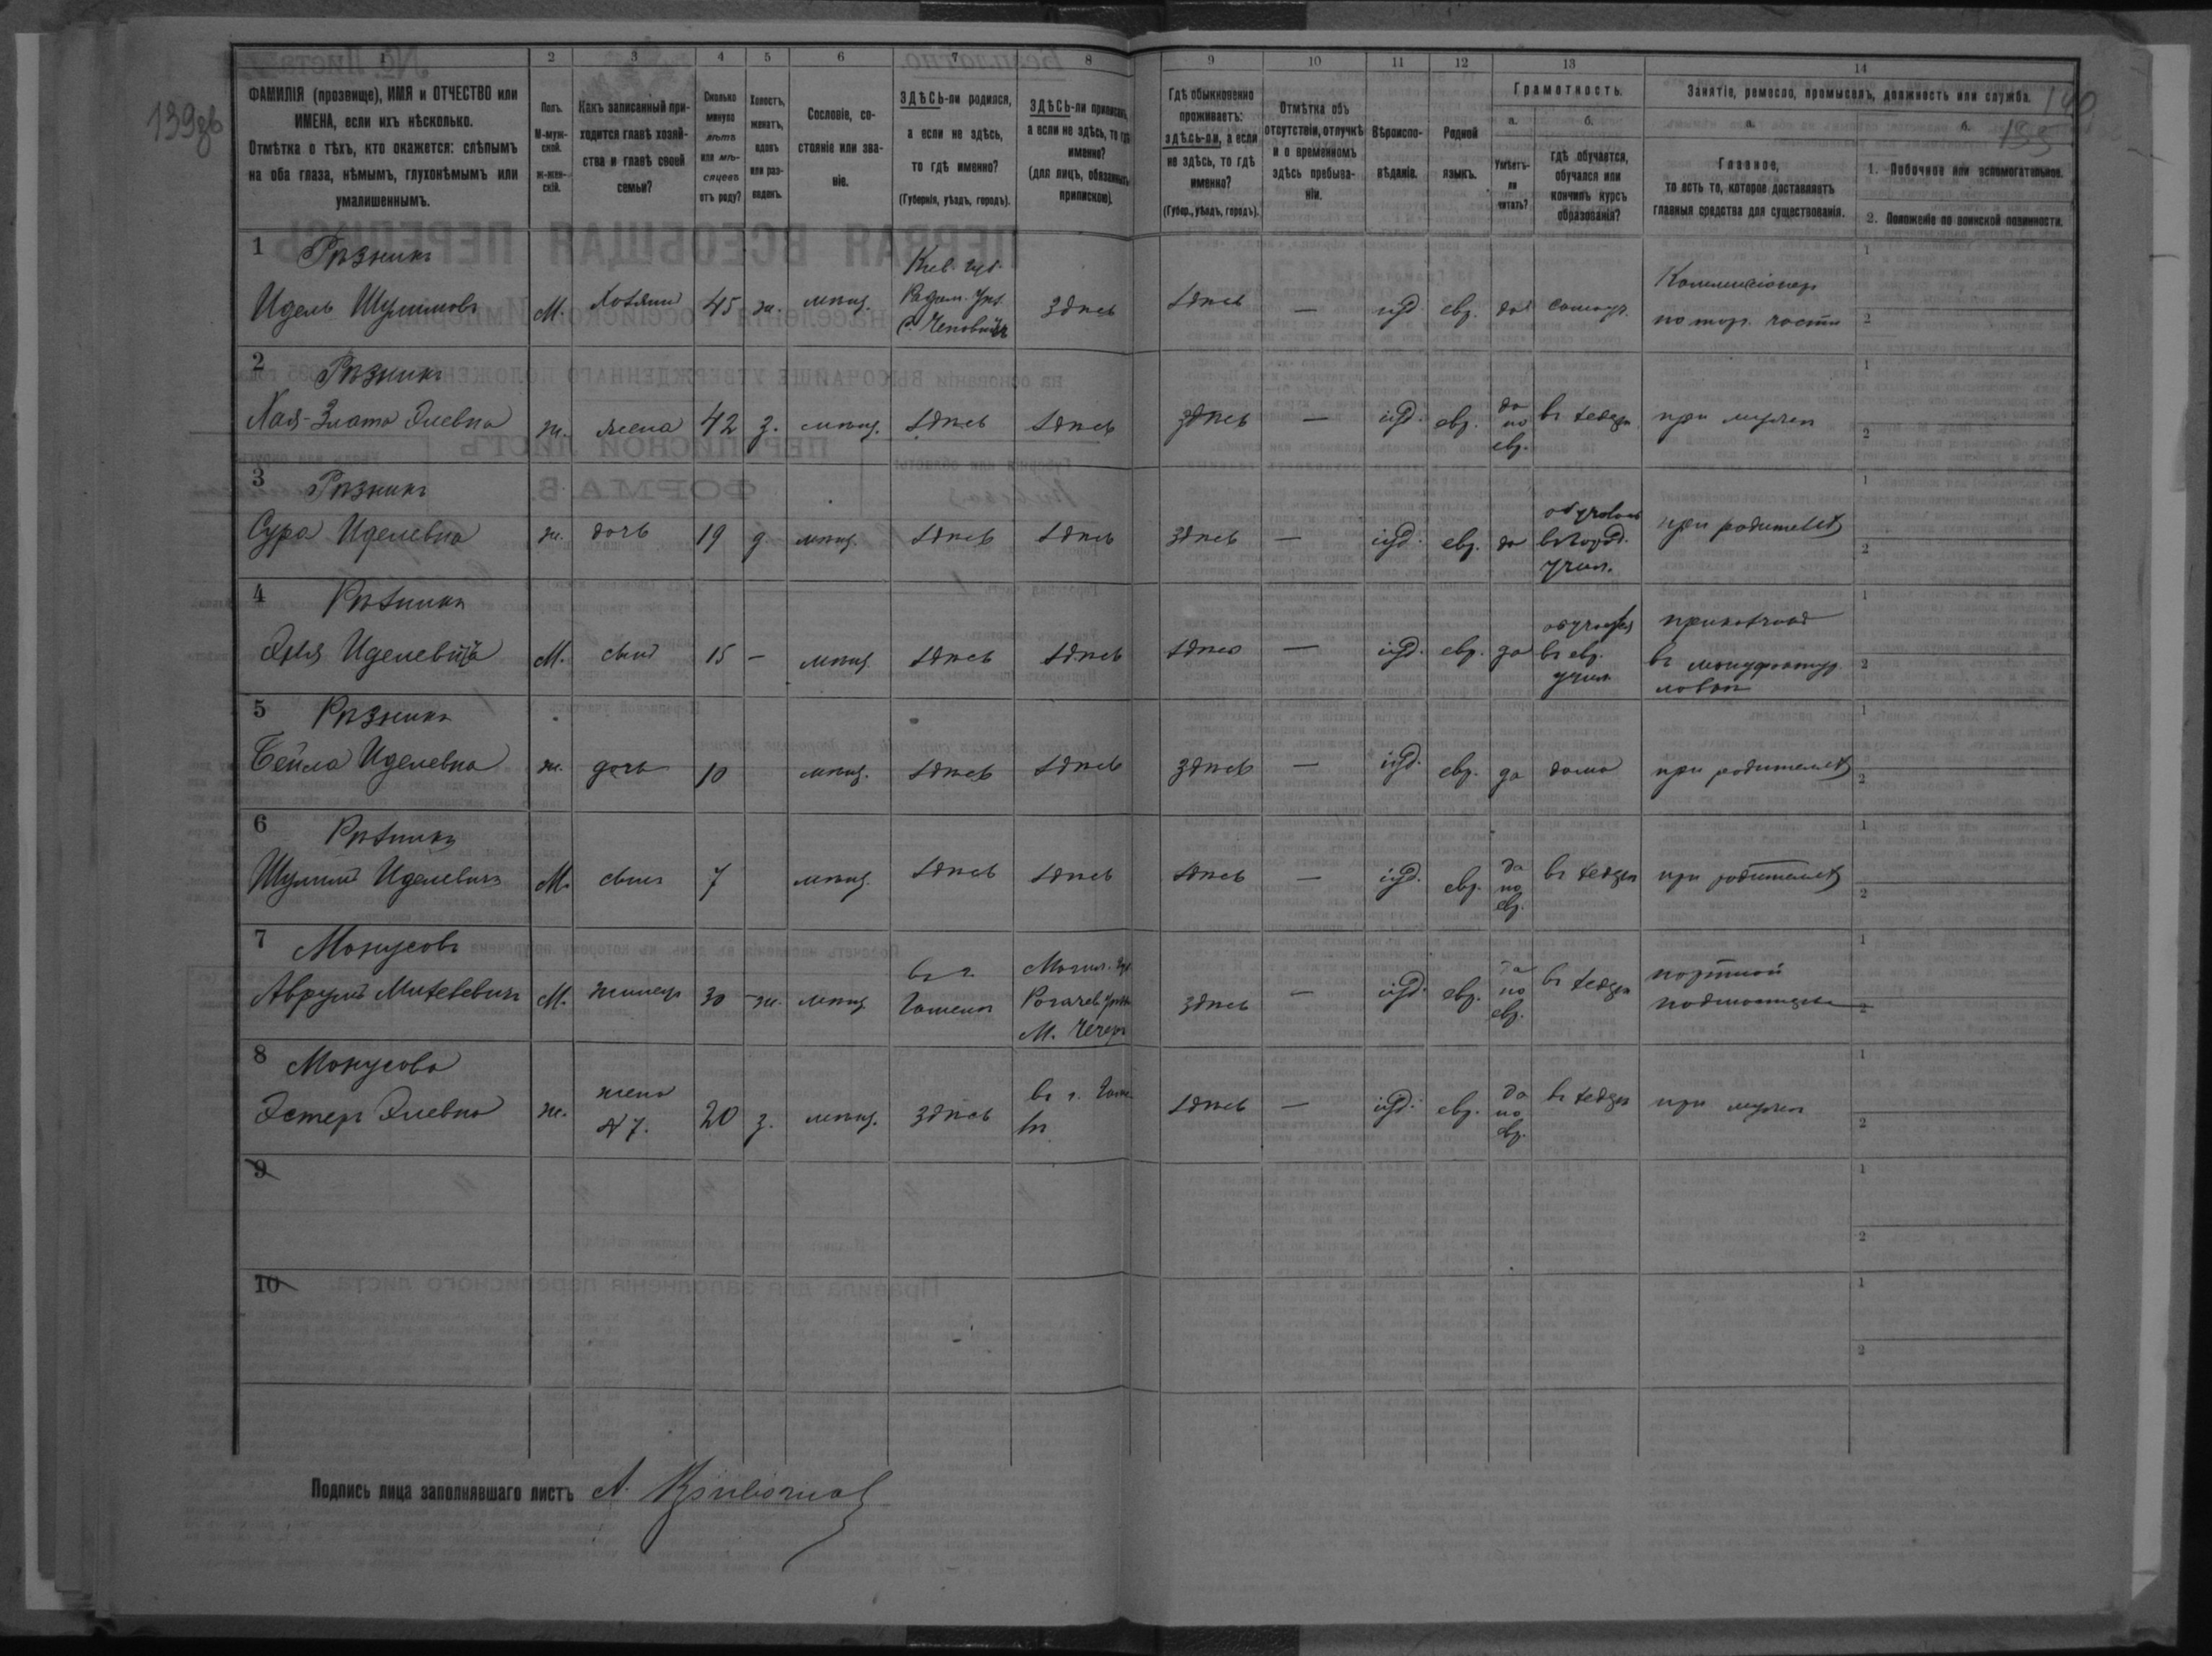 139об
140
155
1 2 3 4 5 6 7 8 9 10 11 12 13 14
ФАМИЛІЯ (прозвище), ИМЯ и ОТЧЕСТВО или ИМЕНА, если ихъ нѣсколько.
Отмѣтка о тѣхъ, кто окажется: слѣпымъ на оба глаза, нѣмымъ, глухонѣмымъ или умалишеннымъ.
Полъ.
М-мужской.
ж-женскій.
Какъ записанный приходится главѣ хозяйства и главѣ своей семьи?
Сколько минуло лѣтъ или мѣсяцевъ отъ роду?
Холостъ, женатъ, вдовъ или разведенъ.
Сословіе, состояніе или званіе.
ЗДѢСЬ-ли родился, а если не здѣсь, то гдѣ именно?
(Губернія, уѣздъ, городъ).
ЗДѢСЬ-ли приписанъ, а если не здѣсь, то гдѣ именно?
(для лицъ, обязанныхъ припискою).
Гдѣ обыкновенно проживаетъ: здѣсь-ли, а если не здѣсь, то гдѣ именно?
(Губер., уѣздъ, городъ).
Отмѣтка объ отсутствіи, отлучкѣ и о временномъ здѣсь пребываніи.
Вѣроисповѣданіе.
Родной языкъ.
Грамотность.
а.
Умѣетъ-ли читать?
б.
гдѣ обучается, обучался или кончилъ курсъ образованія?
Занятіе, ремесло, промыселъ, должность или служба.
а.
Главное,
то есть то, которое доставляетъ главныя средства для существованія.
б.
1. Побочное или вспомогательное.
2. Положеніе по воинской повинности.
1 Рѣзникъ
Идель Шулимовъ М. хозяинъ 45 ж. мѣщ. Кіев. губ. Радом. уѣз. Чеповичъ здѣсь здѣсь — іуд. евр. да самоуч. Коммисіонер по тор. части
2 Рѣзникъ
Хая-Злата Элевна ж. жена 42 з. мѣщ. здѣсь здѣсь здѣсь — іуд. евр. да по евр. въ хедерѣ при мужѣ
3 Рѣзникъ
Сура Иделевна ж. дочь 19 д. мѣщ. здѣсь здѣсь здѣсь — іуд. евр. да въ город. учил. при родителяхъ
4 Рѣзникъ
Иделевичъ М. сынъ 15 — мѣщ. здѣсь здѣсь здѣсь — іуд. евр. да обучался въ евр. учил. приказчикъ въ мануфактур. лавкѣ
5 Рѣзникъ
Бейла Иделевна ж. дочь 10 мѣщ. здѣсь здѣсь здѣсь — іуд. евр. да дома при родителяхъ
6 Рѣзникъ
Шулимъ Иделевичъ М. сынъ 7 мѣщ. здѣсь здѣсь здѣсь — іуд. евр. да по евр. въ хедерѣ при родителяхъ
7 Монусовъ
Аврумъ М. жилецъ 30 ж. мѣщ. въ г. Гомелѣ Могил. губ. Рогачев. уѣзда М. Чечер. здѣсь — іуд. евр. да по евр. въ хедерѣ портной
8 Монусова
Эстеръ Элевна ж. жена № 7. 20 з. мѣщ. здѣсь въ г. здѣсь — іуд. евр. да по евр. въ хедерѣ при мужѣ
9
10
Подпись лица заполнявшаго листъ А.